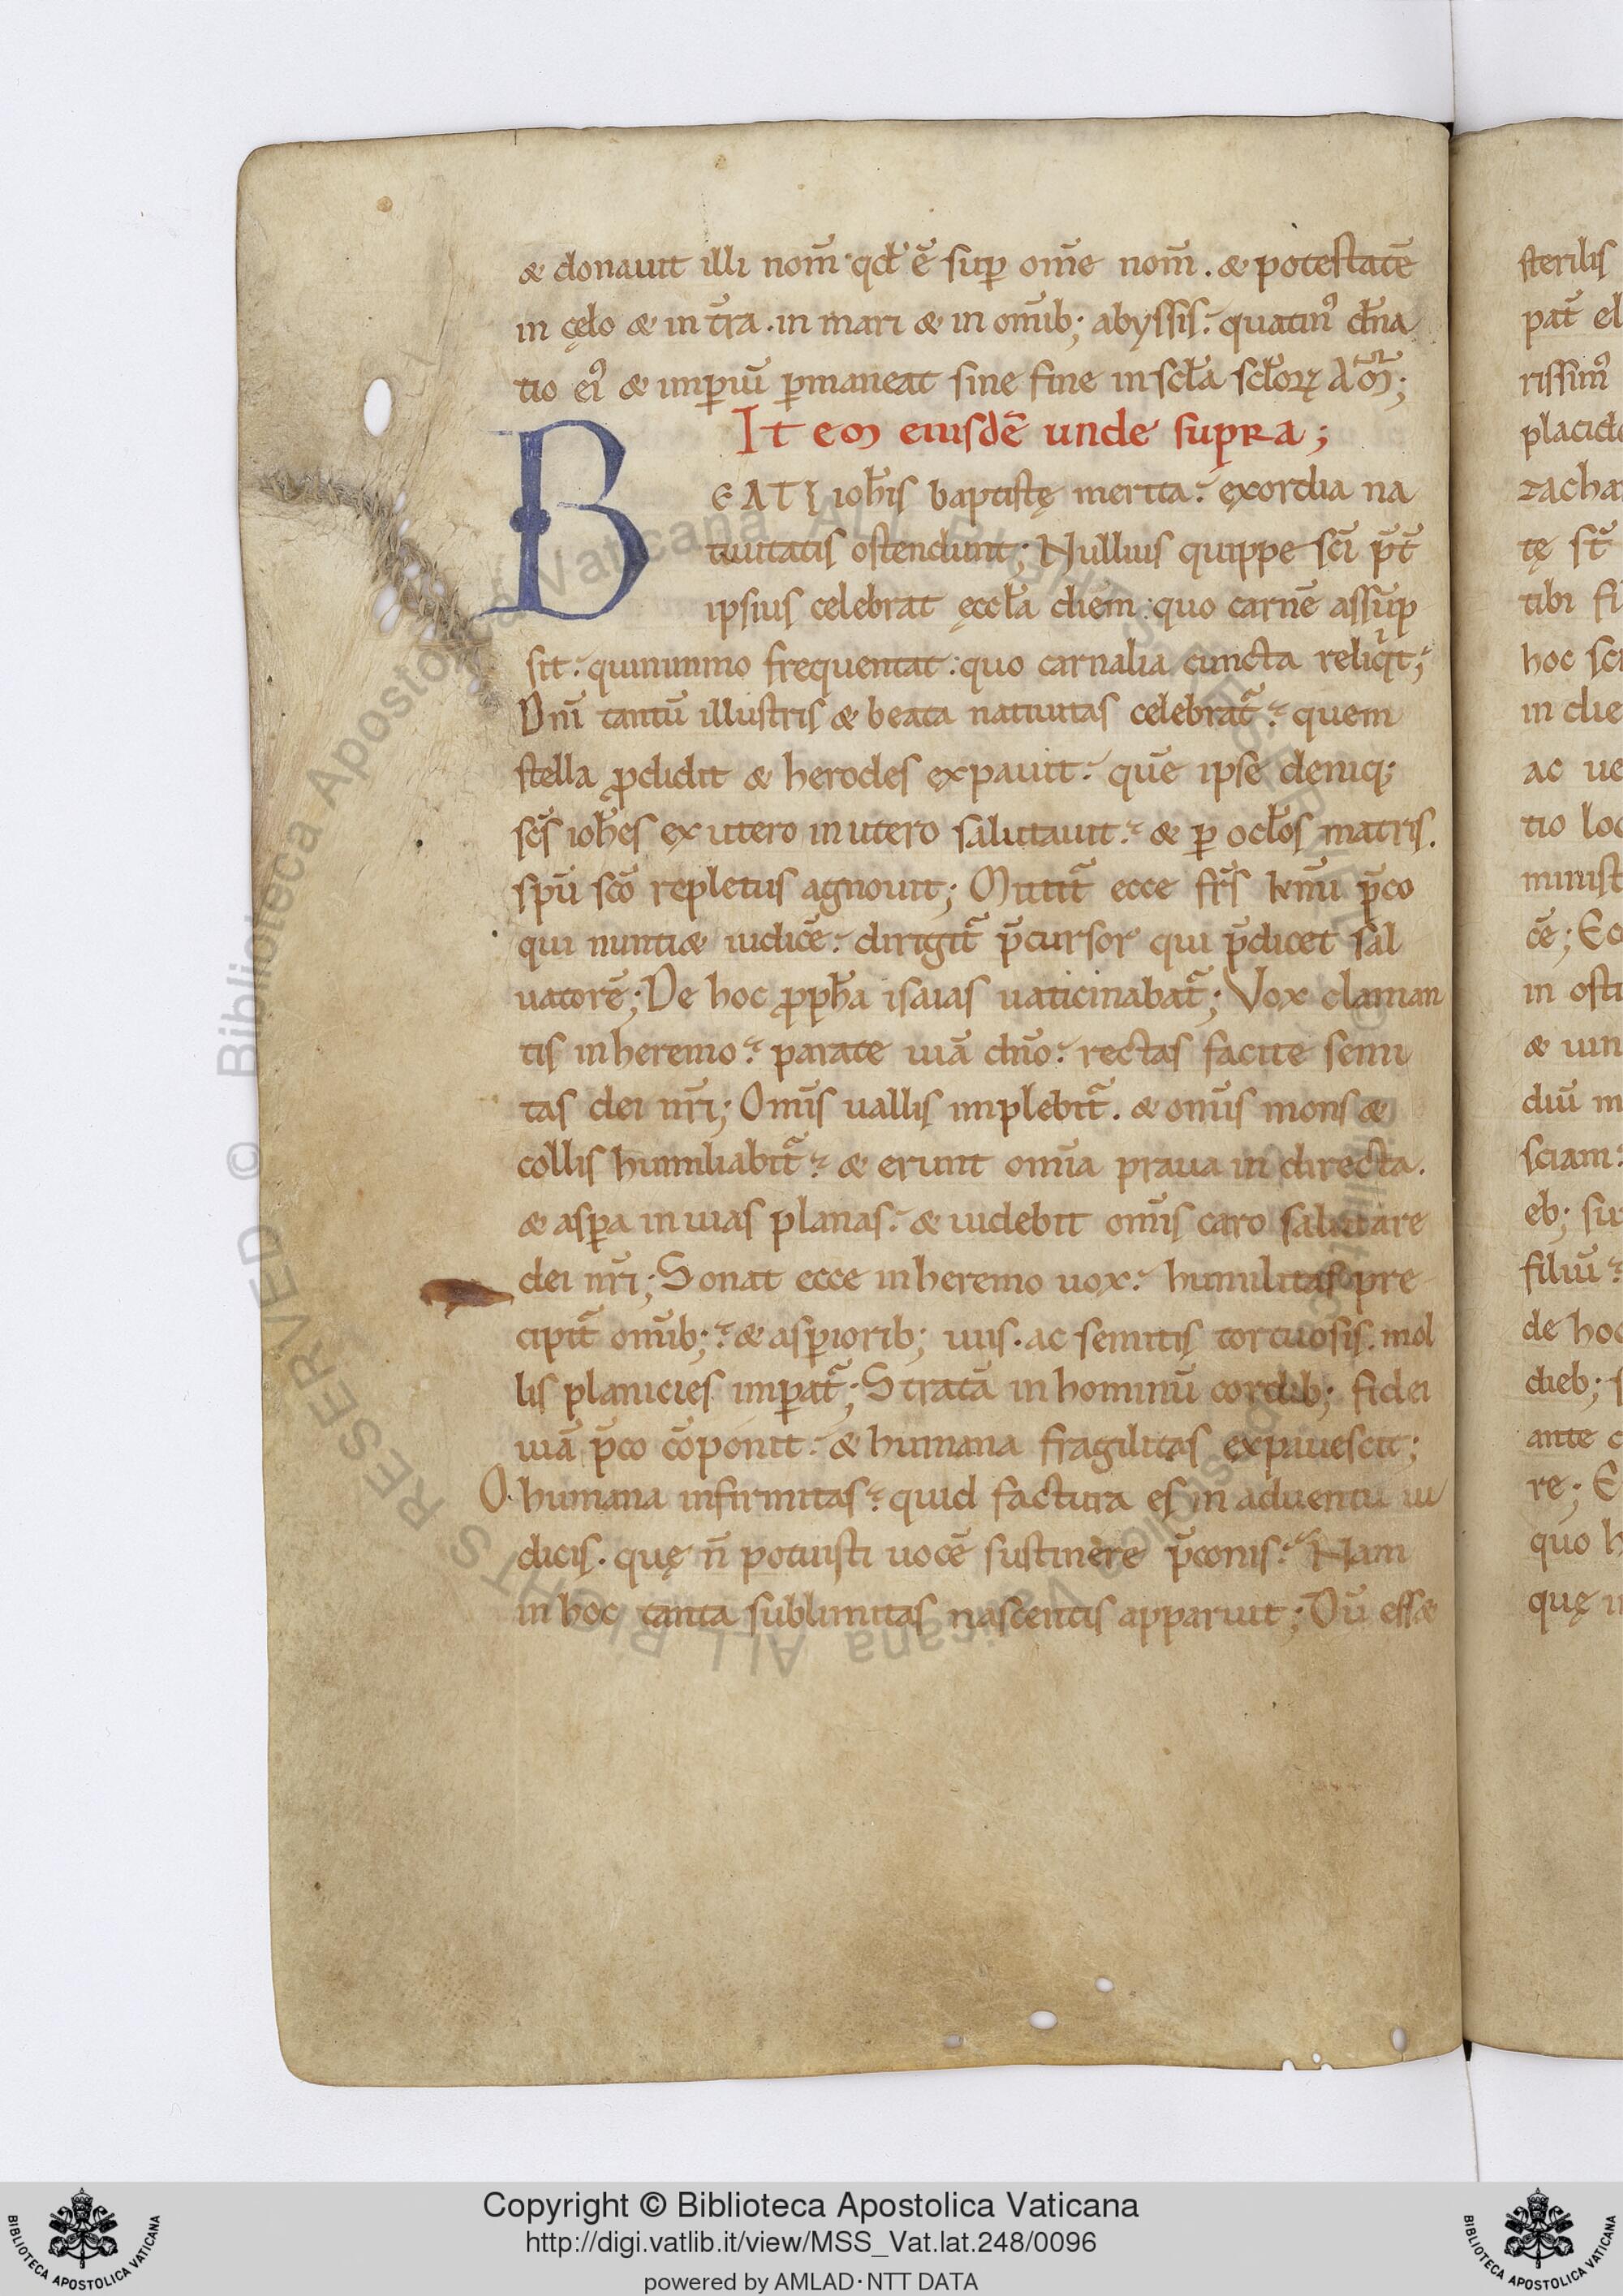 & donauit illi nom̄ qđ ē sup̲ om̄e nom̄. & potestatē
in cęlo & in t̄ra. in mari & in om̄ib; abyssis. quatin⁹ dn̄a
tio ei⁹ & imp̲iū p̲maneat sine fine in scl̄a scl̄oꝝ am̄;
Item eiusdē unde supra;
BEATI ioh̄is baptistę merita. exordia na
tiuitatis ostendunt; Nullius quippe sc̄i p̄t̄
ipsius celebrat ęccl̄a diem quo carnē assūp
sit. quinimmo frequentat quo carnalia cuncta reliqⁱt;
Dn̄i tantū illustris & beata natiuitas celebrat᷑. quem
stella ꝓdidit & herodes expauit. quē ipse deniq;
sc̄s ioh̄es ex utero in utero salutauit. & p̲ ocl̄os matris.
sp̄u sc̄o repletus agnouit; Mittit᷑ ecce fr̄s km̄i p̄co
qui nunti& iudicē. dirigit᷑ p̄cursor qui p̄dicet sal
uatorē; De hoc ꝓph̄a isaias uaticinabat᷑; Vox claman
tis in heremo. parate uiā dn̄o. rectas facite semi
tas dei nr̄i; Om̄is uallis implebit᷑. & om̄is mons &
collis humiliabit᷑. & erunt om̄ia praua in directa.
& asp̲a in uias planas. & uidebit om̄is caro salutare
dei nr̄i; Sonat ecce in heremo uox. humilitas pre
cipit᷑ om̄ib; & asp̲iorib; uiis. ac semitis tortuosis. mol
lis planicies imp̲at᷑; Stratā in hominū cordib; fidei
uiā p̄co cōponit. & humana fragilitas expauescit;
O humana infirmitas. quid factura es in aduentu iu
dicis. quę n̄ potuisti uocē sustinere p̄conis. Nam
in hoc tanta sublimitas nascentis apparuit; Dū ess&
sterilis
pat̄
rissim⁹
zacha
tę st᷑
tibi fi
hoc
in die
ac ue
tio loc
minist
cē; Ec
in osti
& uin
diū m
sciam
eb; su
filiū
de hoc
dieb;
ante
re; E
quo h
quę
Copyright © Biblioteca Apostolica Vaticana
http://digi.vatlib.it/view/MSS_Vat.lat.248/0096
powered by AMLAD·NTT DATA
BIBLIOTECA APOSTOLICA VATICANA
BIBLIOTECA APOSTOLICA VATICANA
© Biblioteca Apostolica Vaticana ALL RIGHTS RESERVED